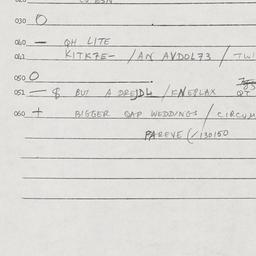 030 O
040 — QH LITE
041 KITKTE- / AN AVDOL73 / TWI
050 O
051 — $. BUT A DREJDL / KNEPLAX QT
060 + BIGGER QAP WEDDINGS / CIRCUM
PAREVE (/ 130150